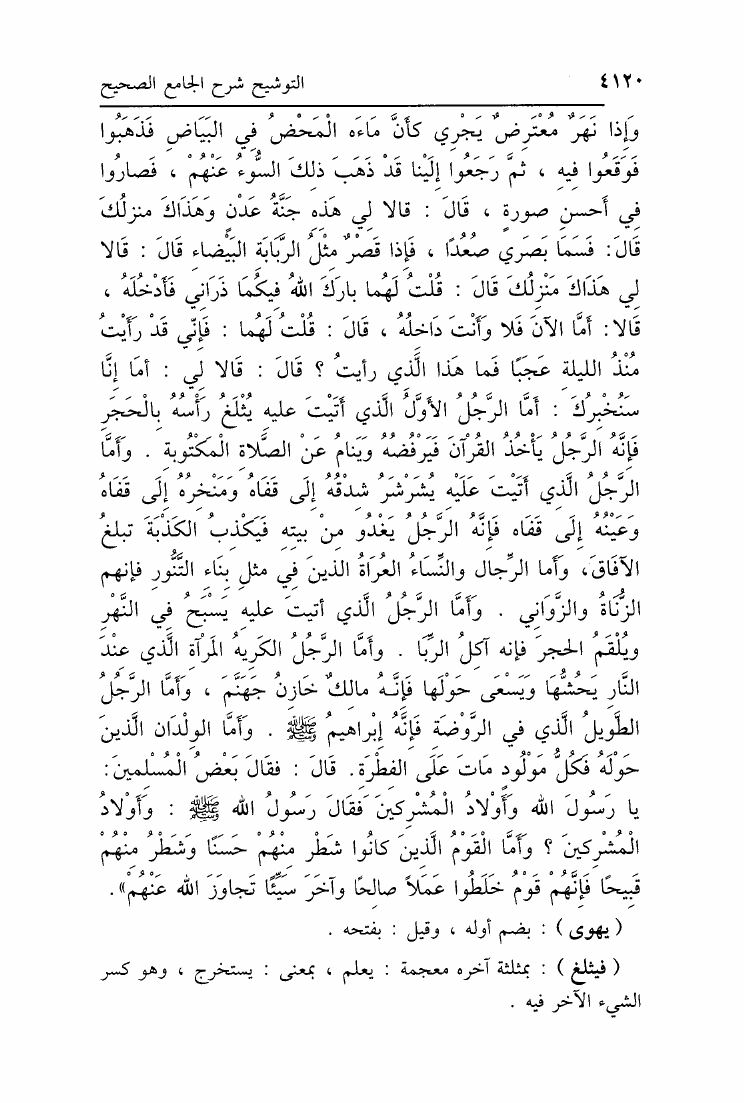 ٤١٢٠ التوشيح شرح الجامع الصحيح
وَإِذا نَهَرٌ مُعْتَرِضٌ يَجْرِي كَأَنَّ مَاءَه الْمَحْضُ فِي البَيَاضِ فَذَهَبُوا
فَوَقَعُوا فِيه ، ثمَّ رَجَعُوا إِلَيْنا قَدْ ذَهَبَ ذلِكَ السُّوءُ عَنْهُمْ ، فَصارُوا
في أَحسنِ صورةٍ ، قَالَ : قالا لِي هَذِهِ جَنَّةُ عَدْنٍ وَهَذَاكَ منزِلُكَ
قَالَ: فَسَمَا بَصَرِي صُعُدًا ، فَإِذا قَصْرٌ مثْلُ الرَّبَابَةِ البَيْضاءِ قَالَ : قَالا
لِي هَذَاكَ مَنْزِلُكَ قَالَ : قُلْتُ لَهُما بارَكَ اللهُ فِيكُمَا ذَرَانِي فَأَدْخُلَهُ ،
قَالا: أَمَّا الآنَ فَلا وَأَنْتَ دَاخِلُهُ ، قَالَ : قُلْتُ لَهُما : فَإِنِّي قَدْ رَأَيْتُ
مُنْذُ الليلةِ عَجَبًا فَما هَذا الَّذي رأيتُ ؟ قَالَ : قَالا لِي : أمَا إِنَّا
سَنُخْبِرُكَ : أَمَّا الرَّجُلُ الأوَّلُ الَّذي أَتَيْتَ عليهِ يُثْلَغُ رَأْسُهُ بِالْحَجَرِ
فَإِنَّهُ الرَّجُلُ يَأْخُذُ القُرْآنَ فَيَرْفضُهُ وَيَنامُ عَنْ الصَّلاةِ الْمَكْتُوبةِ . وَأَمَّا
الرَّجُلُ الَّذي أَتَيْتَ عَلَيْهِ يُشَرْشَرُ شِدْقُهُ إِلَى قَفَاهُ وَمَنْخِرُهُ إِلَى قَفَاهُ
وَعَيْنُهُ إِلَى قَفَاه فَإِنَّهُ الرَّجُلُ يَغْدُو مِنْ بيتِهِ فَيَكْذِبُ الكَذْبَةَ تبلغُ
الآفَاقَ، وَأما الرِّجال والنِّسَاءُ العُرَاةُ الذينَ فِي مثلِ بِنَاءِ التَّنُّورِ فإنهم
الزُّنَاةُ والزَّوَانِي . وَأمَّا الرَّجُلُ الَّذي أتيتَ عليهِ يَسْبَحُ في النَّهْرِ
ويُلْقَمُ الحجرَ فإنه آكلُ الرِّبَا . وأمَّا الرَّجُلُ الكَرِيهُ المَرْآةِ الَّذي عِنْدَ
النَّارِ يَحُشُّهَا وَيَسْعَى حَوْلَها فَإِنَّهُ مالكٌ خَازِنُ جَهَنَّمَ ، وَأَمَّا الرَّجُلُ
الطَّوِيلُ الَّذي فِي الرَّوْضَةِ فَإِنَّهُ إِبْراهيمُ ﷺ . وَأَمَّا الوِلْدَان الَّذِينَ
حَوْلَهُ فَكُلُّ مَوْلُودٍ مَاتَ عَلَى الفِطْرَةِ. قَالَ : فقالَ بَعْضُ الْمُسْلمينَ:
يا رَسُولَ الله وَأَوْلادُ الْمُشْرِكينَ فَقالَ رَسُولُ الله ﷺ : وَأَوْلادُ
الْمُشْرِكينَ ؟ وَأَمَّا الْقَوْمُ الَّذينَ كَانُوا شَطْر مِنْهُمْ حَسَنًا وَشَطْرُ مِنْهُمْ
قَبِيحًا فَإِنَّهُمْ قَوْمٌ خَلَطُوا عَمَلاً صالحًا وآخَرَ سَيِّئًا تَجاوَزَ الله عَنْهُمْ».
( يهوى ) : بضم أوله ، وقيل : بفتحه .
( فيثلغ ) : بمثلثة آخره معجمة : يعلم ، بمعنى : يستخرج ، وهو كسر
الشيء الآخر فيه .